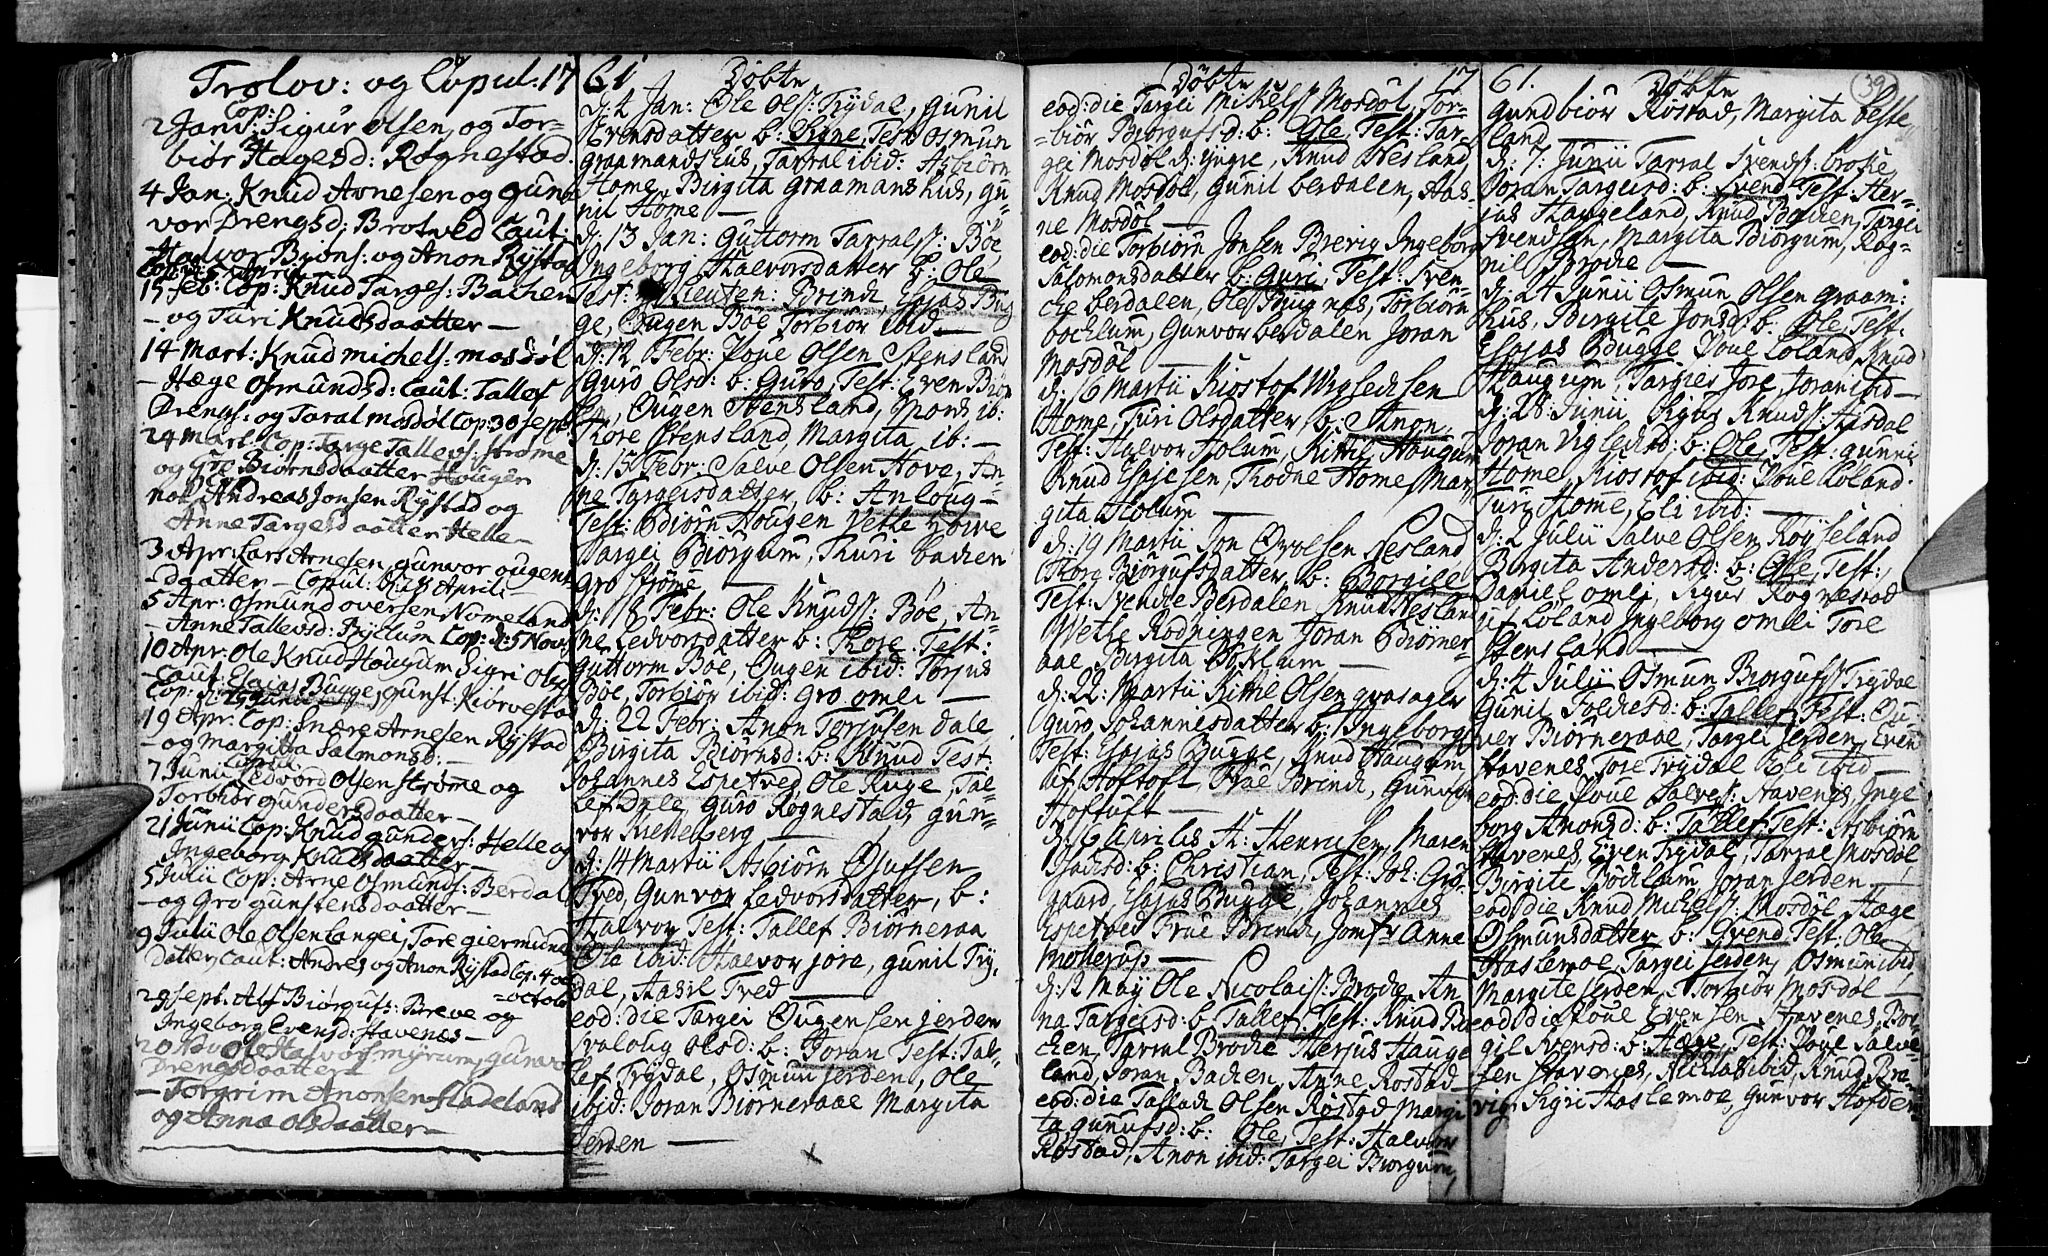 Trolov: og Copul: 17
Cop:
2 Janv: Sigur Olsen og Tor-
biør Hagesd: Røgnestad.
4 Jan: Knud Arnesen og Gun-
vor Drengsd: Brotveld Caut:
Halvor Biøns: og Anon Rÿstad
15 Feb: Cop: Knud Targes: Bachen
- og Turi Knudsdaatter -
14 Mart: Knud michels: mosdøl
- Hæge Osmundsd: Caut: Tallef
Drengs: og Taral mosdøl Cop: 30 sept:
24 Mart: Cop: Targe Tallevs: strøme
og Gro Biørnsdaatter Hougen
Andreas Jonsen Rÿstad og
Anne Targesdaatter Helle -
3 Apr: Lars Arnesen gunvor ougens
daatter - Copul: April:
5 Apr: Osmund oversen Nomeland
- Anne Tallevsd: Bÿclum Cop: d: 5 Nov:
10 Apr: Ole Knud Hougum Sigri Olsd
- Caut: Esaias Bugge, gunst: Kiørvestad
Cop: d: 25 Junii
19 Apr: Cop: Arnesen Rÿstad
- og Margitta Salmonsd: -
7 Junii Ledvord Olsen strøme og
Torbiør gundersdaatter -
21 Junii Cop: Knud gunders: Helle og
Ingeborg Knudsdaatter -
5 Julii Cop: Arne Osmunds: Berdal
- og Gro gunstensdaatter -
9 Julii Ole Olsen Langei, Tore giermunds
datter, Caut: Andres og Anon Rÿstad Cop: 4
octob
29 sept: Alf Biørgufs: Breve og
Ingeborg Evensd: Havenes -
20 Nov: Ole Halvor myrum, gunvor
Drengsdaatter
- Torgrim Anonsen fladeland
og Anna Olsdaatter -
61
Døbte
d: 2 Jan: Ole Ols: Trÿdal, Gunil
Evensdatter b: Signe, Test: Osmun
Graamandshus, Tarral ibid: Asbiørn
Home, Birgita Graamanshus, Gu-
nil Home -
d: 13 Jan: Guttorm Tarrals: Bøe
Ingeborg Halvorsdatter b: Ole
Test: Lieuten: Brinch Esaias Bug
ge, Ougen Bøe Torbiør ibid -
d: 12 Febr: Poue Olsen Stensland
Guro Olsd: b: Guro, Test: Even
Ougen Stensland, ib:
Tore Stensland, Margita ib: -
d: 15 Febr: Salve Olsen Hove, An-
ne Targeisdatter, b: Anloug -
Test: Biørn Hougen Vetle Hove
Targei Biørgum, Thuri bachen
Gro strøme -
d: 18 Febr: Ole Knuds: Bøe, An-
ne Ledvorsdatter b: Tore Test:
Guttorm Bøe, Ougen ibid: Torjus
Bøe, Torbiør ibid: Gro omli -
d: 22 Febr: Anon Torjusen dale
Birgita Biørnsd: b: Knud Test:
Johannes Espetved, Ole Ruge, Tal-
lef Dale, Guro Rognestad, Gun-
vor Kielleberg -
d: 14 Martii Asbiørn Olufsen
Tved, Gunvor Ledvorsdatter, b:
Halvor, Test: Tallef Biørneraa
Ola ibid: Halvor jore, Gunil Trÿ-
dal, Aasil Tved -
eod: die Targei Ougensen jerden
Svaloug Olsd: b: Joran Test: Tal-
lef Trÿdal, Osmun jerden, Ole
ibid: Joran Biørneraae Margita
Jerden -
x
Døbte 17
eod: die Targei Mikels: Mosdøl, Tor-
biør Biørgufsd: b: Ole, Test: Tar-
gei Mosdøl d: yngre, Knud Nesland
Knud Mosdøl, Gunil berdalen, Aas-
ne Mosdøl -
eod: die Torbiørn Jonsen Brevig Ingeborg
Salomonsdatter b: Guri Test: Sven-
che berdalen, Ole Brugnes, Torbiørn
bochlum, Gunvor berdalen Joran
Mosdøl -
d: 16 Martii Kiostof Vigleichsen
Home, Turi Olsdatter, b: Anon,
Test: Halvor Holum, Kittil Haugum
Knud Esaiesen, Thodne Home Mar-
gita Holum -
d: 19 Martii Jon Orolsen Nesland
Thore Biørgufsdatter, b: Borgille
Test: Svenche Berdalen, Knud Nesland
Vetle Rodningen Joran Biørner-
aae, Birgita Bøklum -
d: 22: Martii Kittil Olsen Graasager
Guro Johannisdatter b: Ingeborg
Test: Esaias Bugge, Knud Haugum
Hoftoft, Frue Brinch, Gunvor
Hoftuft -
d: 16 Aprilis H: Henrusen, Maren
Isachsd: b: Christian, Test: Joh:
gaard, Esaias Bugge, Johannes
Espetved Frue Brinch, Jomfr: Anne
Møllerups -
d: 12 Maÿ Ole Nicolais: Broche An
na Targeisd: b: Tallef, Test: Knud Ba
chen, Tarral Broche Herjus Hauge
land, Joran Bachen, Anne Rostad
eod: die Tallach Olsen Røstad Margi
ta gunufsd: b: Ole, Test: Halvor
Røstad, Anon ibid: Targei Biørgum,
61. Døbte
39
Gundbiør Røstad, Margita beste
land -
d: 7: Junii Tarral Svends: broke,
Joran Targeisd: b: Svend Test: Her-
jus Haugeland, Knud Bachen, Targei
Svendsen, Margita Biørgum, Rog-
nil Broche -
d: 24 Junii Osmun Olsen graam:
hus, Birgite Jonsd: b: Ole, Test:
Esaias Bugge Poue Loland Knud
Haugum, Targier Jore, Joran ibid -
d: 28 Junii Sigus Knuds: Aasdal
Joran Vigleichsd: b: Ole Test: gunni
Home, Kiostof ibid: Poue Loland.
Turi Home, Eli ibid: -
d: 2 Julii Salve Olsen Røÿseland
Birgita Andersd: b: Ole, Test:
Daniel omli, Sigur Rognestad
Løland Ingeborg omli Tore
Stensland -
d: 4 Julii Osmun Biørgufs: Trÿdal
Gunil Folchesd: b: Tallef, Test: Ou-
ver Biørneraae, Targei Jerden, Even
Havenes, Tore Trÿdal Eli ibid -
eod: die Poue Salves: Havenes, Inge
borg Anonsd: b: Tallef, Test: Esbiørn
Havenes, Even Trÿdal, Tarral Mosdøl,
Birgite Bøchlum, Joran Jerden -
eod: die Knud Mikels: Mosdøl, Hæge
Osmunsdatter, b: Svend Test: Ole
Haslemoe, Targei Jerden, Osmun ibid,
Margite Jerden, Torbiør Mosdøl -
eod: die Poue Evensen Havenes, Bor-
gil Svensd: b: Hæge, Test: Poue Salve-
sen Havenes, Nichlas ibid, Knud Bre-
vig, Sigri Haslemoe, Gunvor Hofden